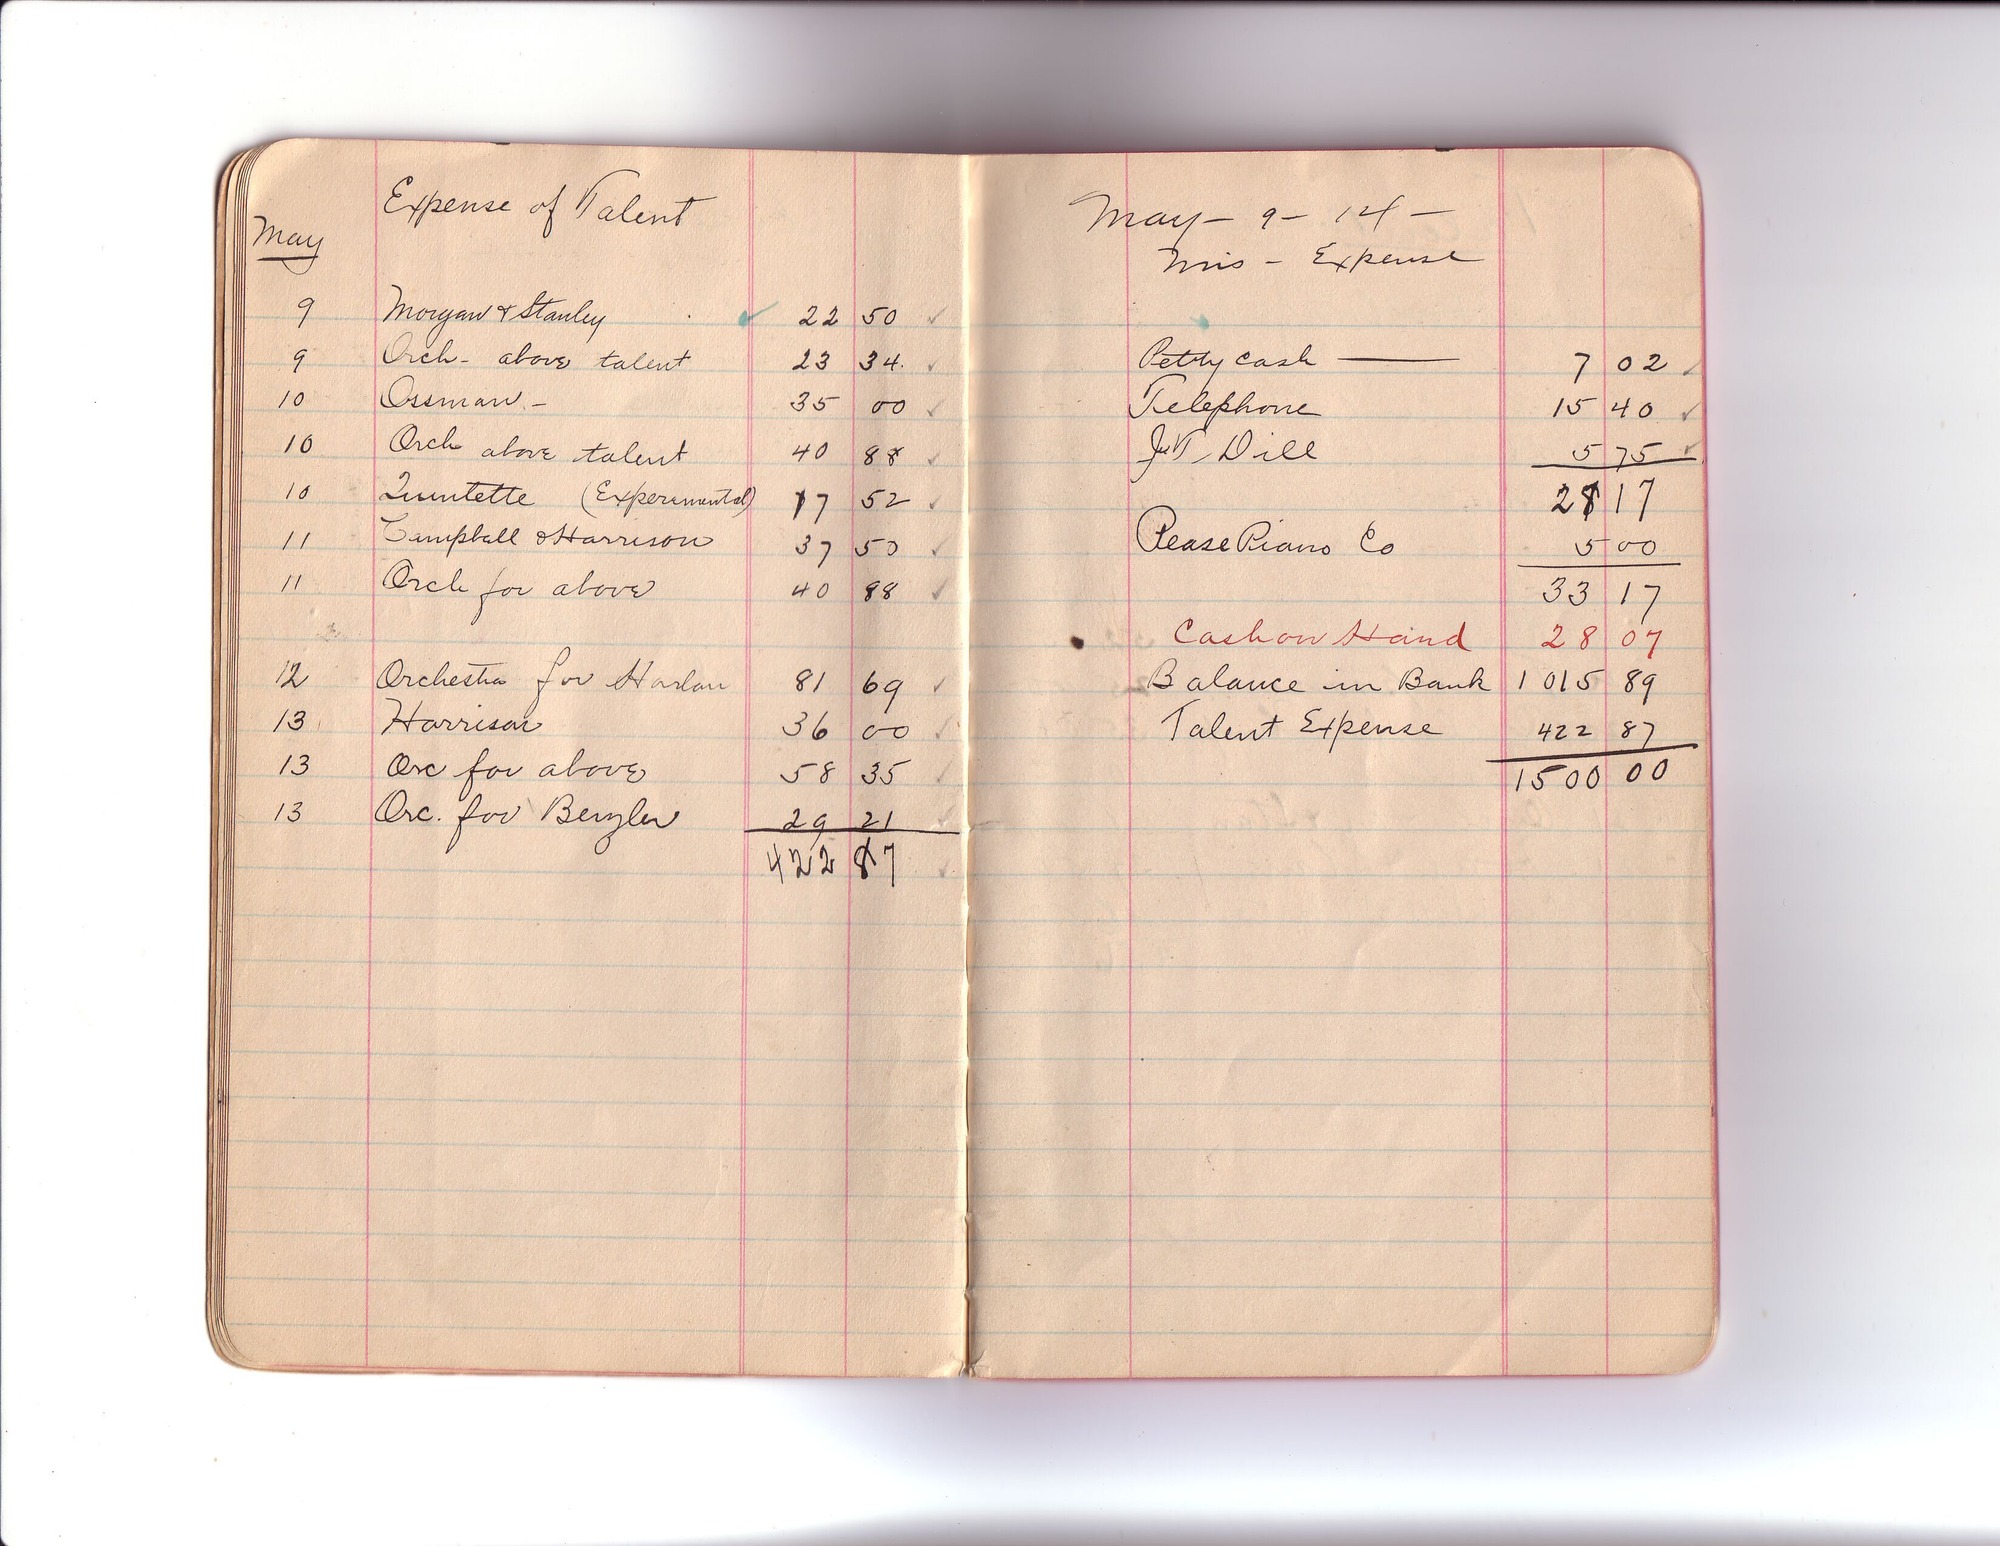 Expense of Talent
May
9 Morgan & Stanley 22 50
9 Orch - above talent 23 34
10 Ossman - 35 00
10 Orch above talent 40 88
10 Quintette (Experimental) 17 52
11 Campbell & Harrison 37 50
11 Orch for above 40 88
12 Orchestra for Harlan 81 69
13 Harrison 36 00
13 Orc for above 58 35
13 Orc. for Bergler 29 21
422 87
May - 9 - 14 -
Mis - Expense
Petty cash 7 02
Telephone 15 40
Dill 5 75
28 17
Pease Piano Co 5 00
33 17
Cash on Hand 28 07
Balance in Bank 1015 89
Talent Expense 422 87
1500 00